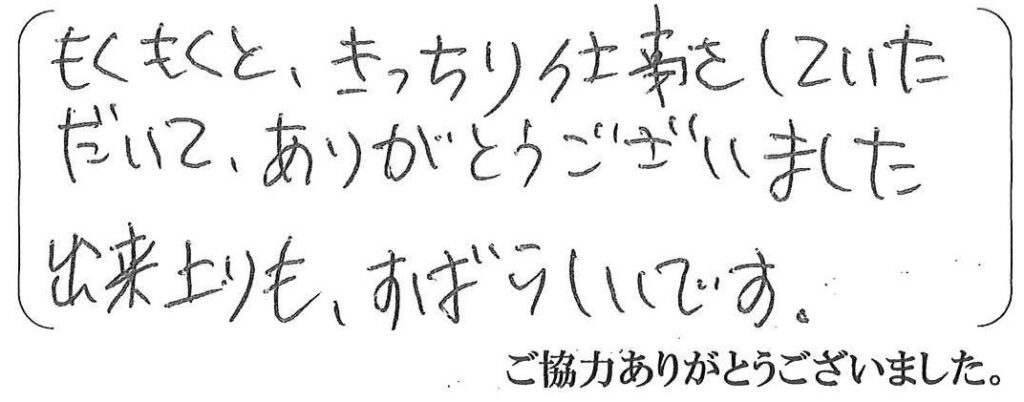 もくもくと、きっちり仕事をしていた
だいて、ありがとうございました
出来上りも、すばらしいです。
ご協力ありがとうございました。